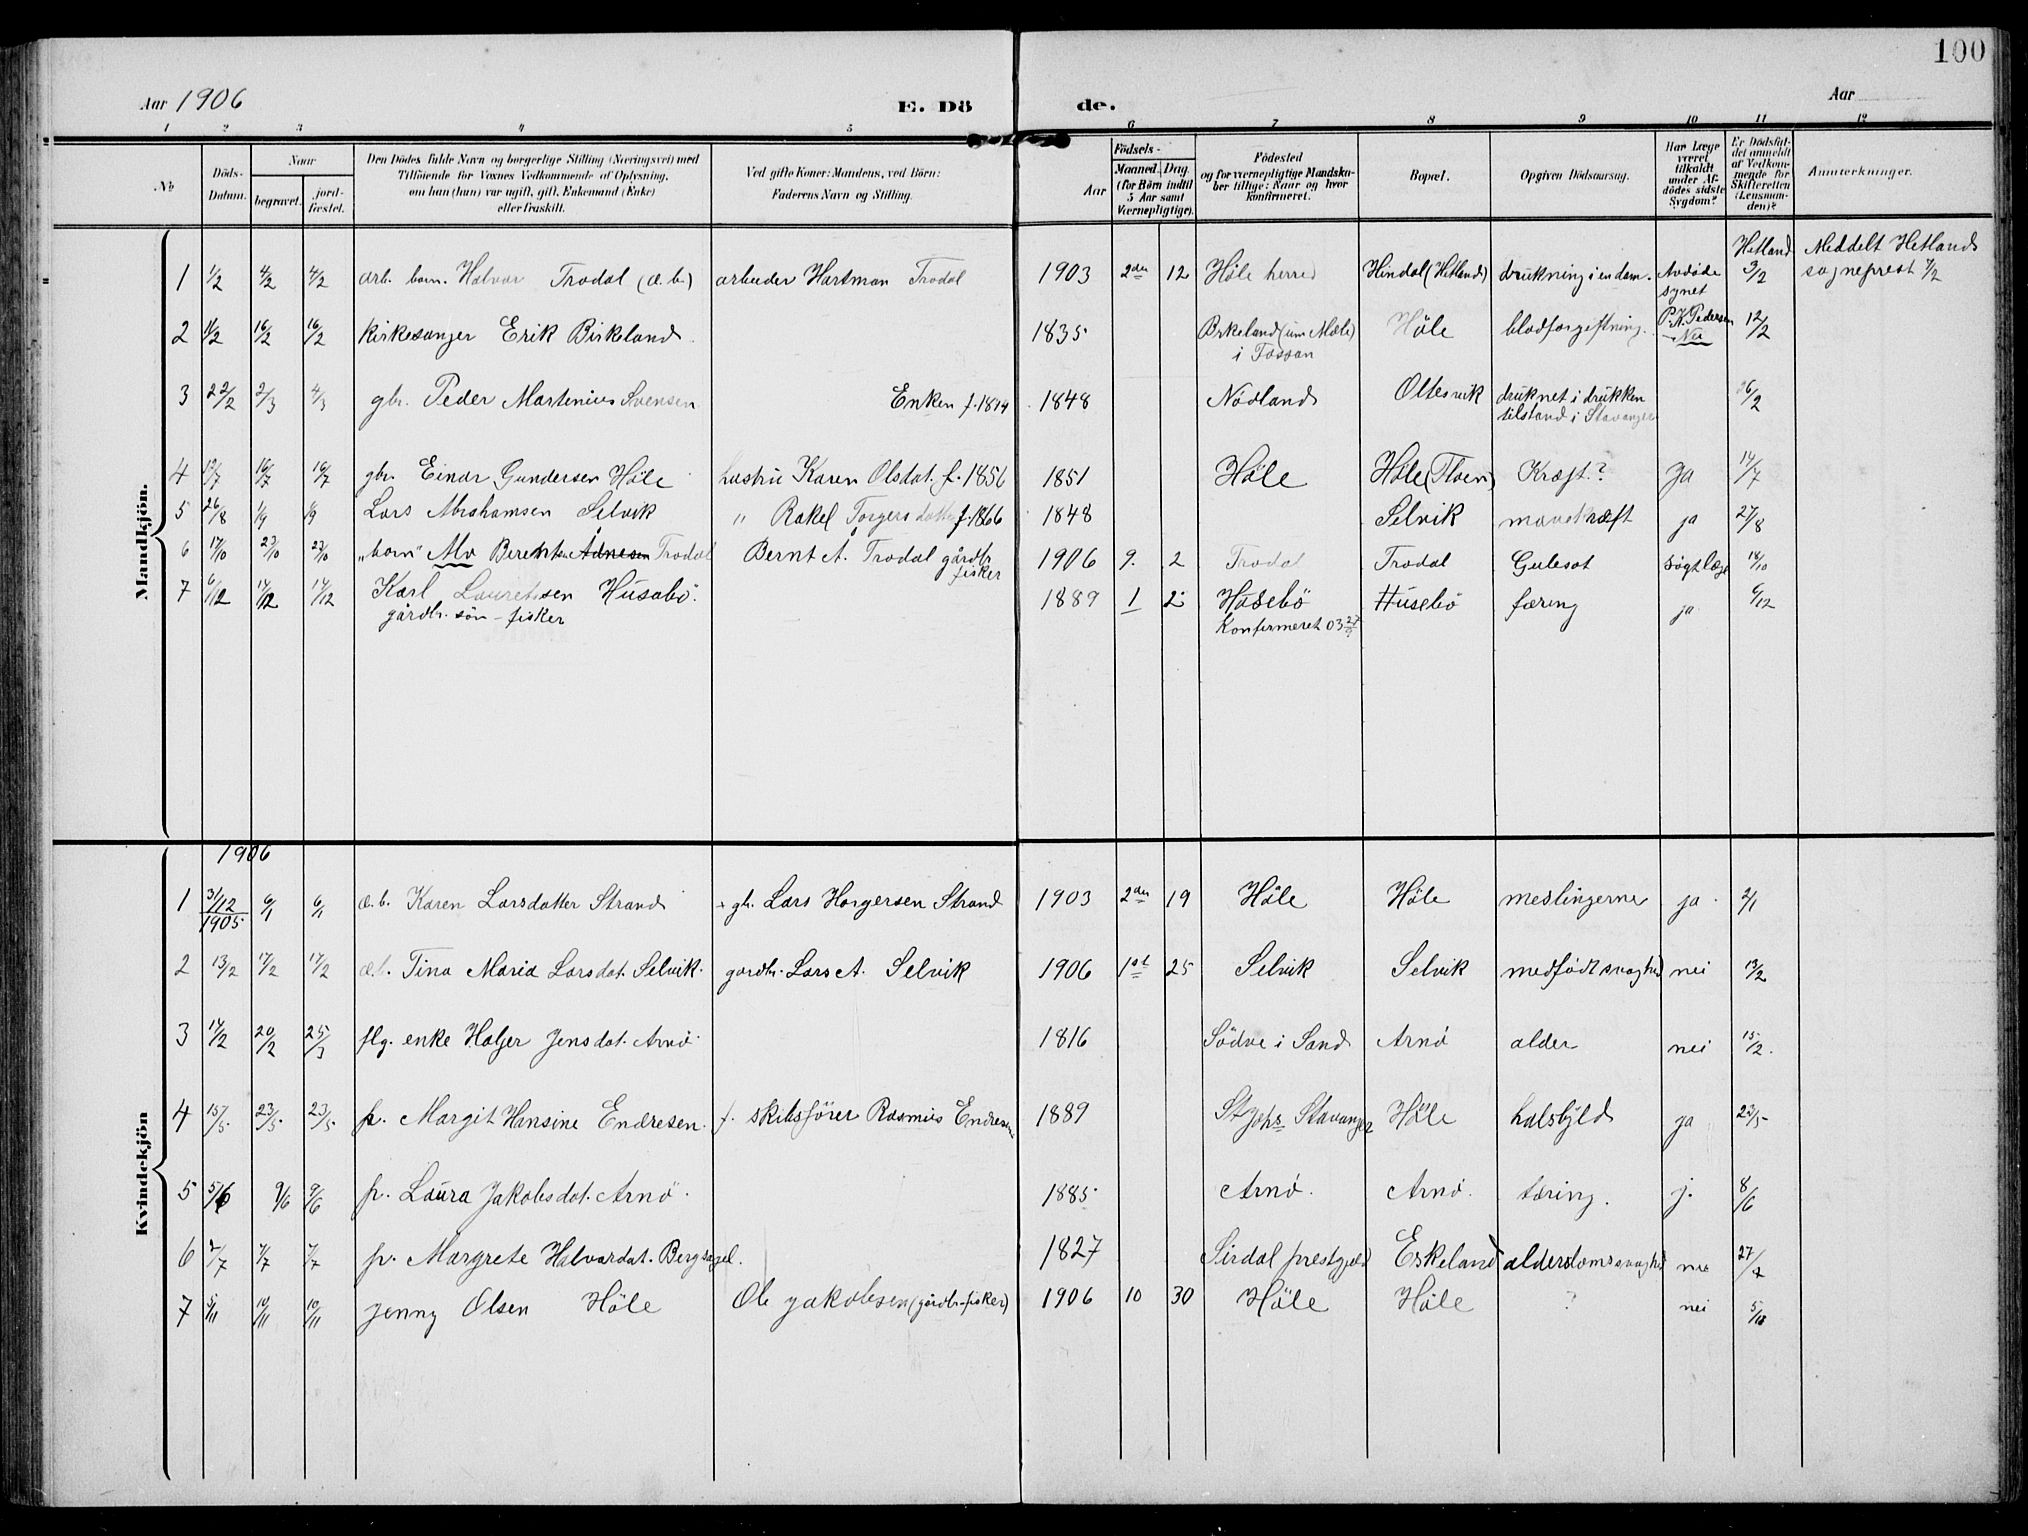 100
Aar 1906 E. Dö de. Aar
1 2 3 4 5 6 7 8 9 10 11 12
No Döds-Datum. Naar begravet. jordfæstet. Den Dödes fulde Navn og borgerlige Stilling (Næringsvei) med Tilföiende for Voxnes Vedkommende af Oplysning, om han (hun) var ugift, gift, Enkemand (Enke) eller fraskilt. Ved gifte Koner: Mandens, ved Börn: Faderens Navn og Stilling. Födsels- Aar Maaned. Dag. (for Börn indtil 5 Aar samt Værnepligtige). Födested og for værnepligtige Mandskaber tillige: Naar og hvor konfirmeret. Bopæl. Opgiven Dödsaarsag. Har Læge været tilkaldt under Afdödes sidste Sygdom? Er Dödsfaldet anmeldt af Vedkommende for Skifteretten (Lensmanden)? Anmærkninger.
Mandkjön.
1 1/2 4/2 4/2 arb. barn. Halvor Trodal (æ. b.) arbeider Hartman Trodal 1903 2den 12 Høle herred Hindal (Hetland) drukning i en dam. Avdøde synet Hetland 3/2 Meddelt Hetlands sogneprest 7/2
2 11/2 16/2 16/2 Kirkesanger Erik Birkeland. 1835 Birkeland i Fossan Høle blodforgiftning. P. K. Pedersen Nei 12/2
3 22/2 2/3 4/3 gbr. Peder Martenius Svensen Enken f. 1844 1848 Nödland Oltesvik druknet i drukken tilstand i Stavanger 26/2
4 16/7 16/7 gbr. Einar Gundersen Høle hustru Karen Olsdat. f. 1856 1851 Høle Høle Kræft? Ja 14/7
5 26/8 1/9 1/9 Lars Abrahamsen Selvik " Rakel Torgersdatter f. 1866 1848 Selvik mavekræft ja 27/8
6 17/10 23/10 23/10 "barn" Alv Berentsen Trodal Bernt A. Trodal gårdbr. fisker 1906 9. 2 Trodal Trodal Gulesot søgt læge 18/10
7 6/12 14/12 14/12 Karl Lauretsen Husabö. gårdbr. sön - fisker 1889 1 2 Husebö Konfirmeret 03 Husebö tæring ja 6/12
Kvindekjön
1906
1 31/12 1905 6/1 6/1 æ. b. Karen Larsdatter Strand gbr. Lars Horgersen Strand 1903 2den 19 Høle Høle meslingerne ja 2/1
2 13/2 17/2 17/2 æ. b. Tina Maria Larsdat. Selvik. gardbr. Lars A. Selvik 1906 1st 25 Selvik Selvik medfødt svaghed nei 13/2
3 14/2 20/2 25/3 flg. enke Holjer Jensdat. Arnö 1816 Södve i Sand Arnö alder nei 15/2.
4 15/5 23/5 23/5 p. Margit Hansine Endresen. f. skibsförer Rasmus Endresen 1889 St Johs Stavanger Høle halsbyld ja 23/5
5 5/6 9/6 9/6 p. Laura Jakobsdat. Arnö. 1885 Arnö. Arnö. tæring. j. 8/6
6 2/7 7/7 7/7 p. Margrete Halvardat. Bergsagel. 1827 Sirdal prestgjeld Eskeland alderdomssvaghed nei
7 5/11 10/11 10/11 Jenny Olsen Höle Ole Jakobsen (gårdbr. fisker) 1906 10 30 Höle Höle ? nei